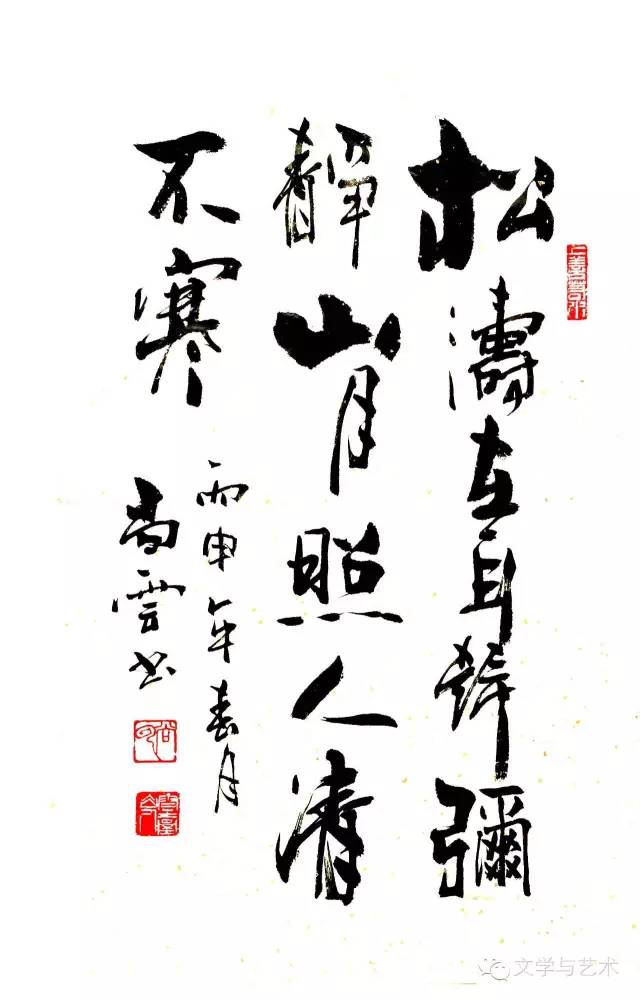 松濤在耳聲彌
靜山月照人清
不寒
丙申年春月
尚雲书
文学与艺术